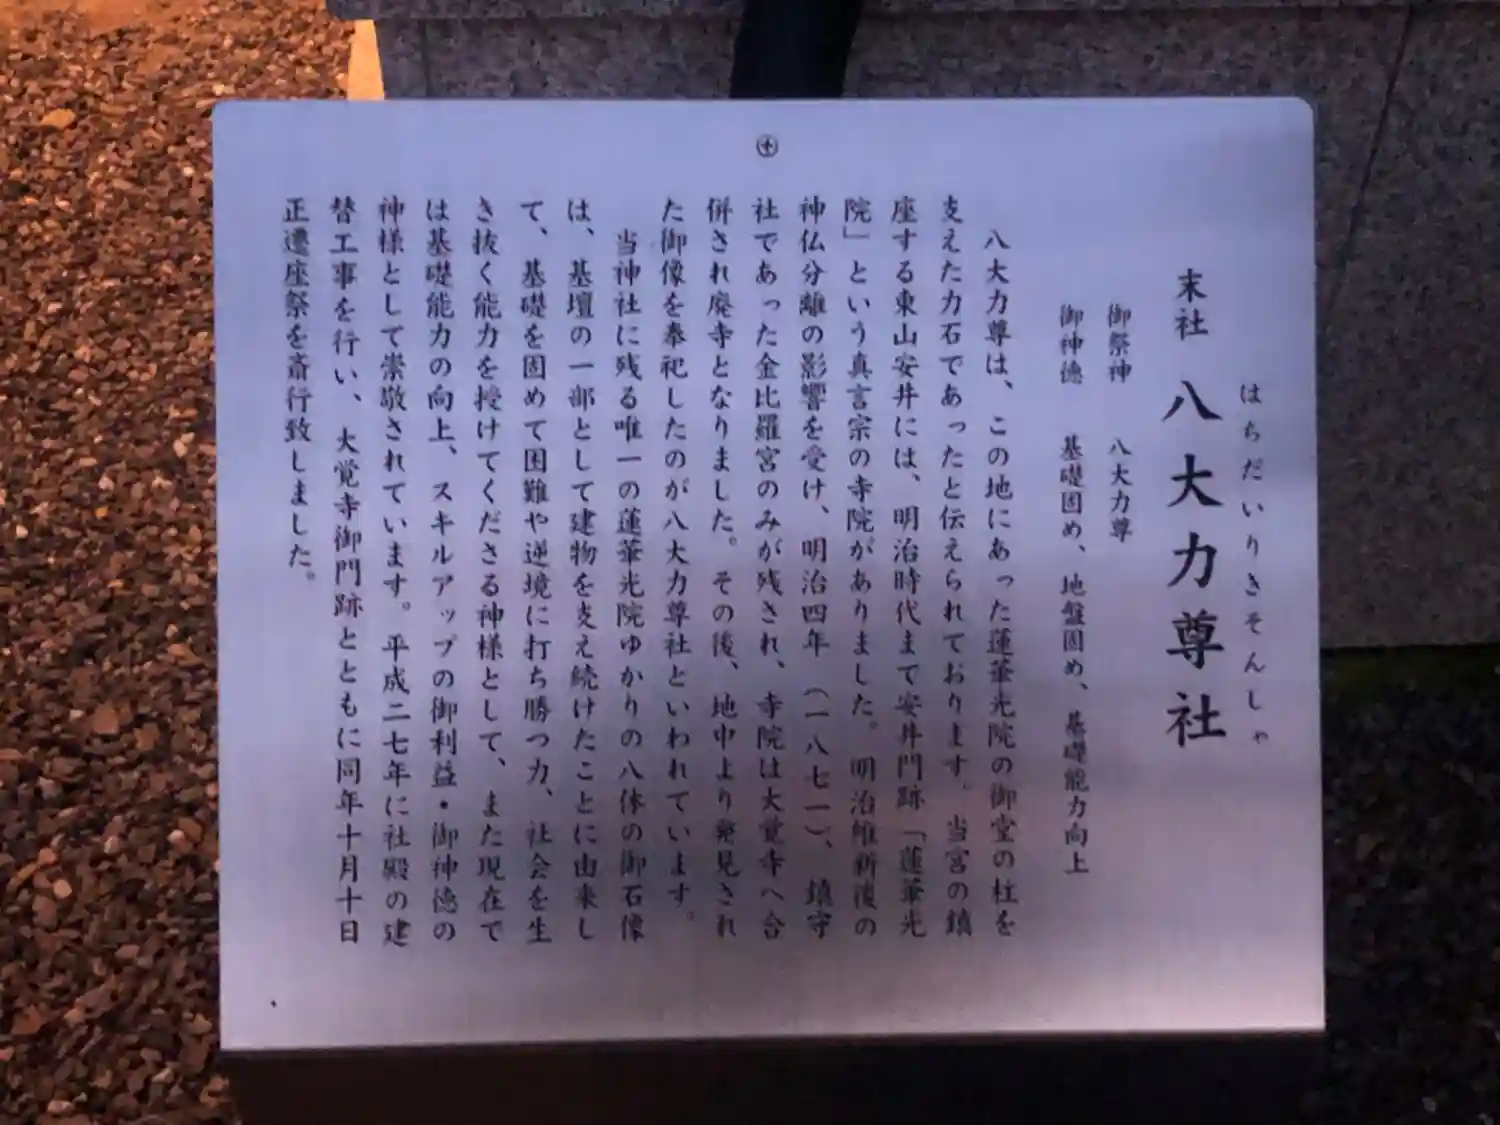 はちだいりきそんしゃ
末社 八大力尊社
御祭神 八大力尊
御神徳 基礎固め、地盤固め、基礎能力向上
八大力尊は、この地にあった蓮華光院の御堂の柱を
支えた力石であったと伝えられております。当宮の鎮
座する東山安井には、明治時代まで安井門跡「蓮華光
院」という真言宗の寺院がありました。明治維新後の
神仏分離の影響を受け、明治四年（一八七一）、鎮守
社であった金比羅宮のみが残され、寺院は大覚寺へ合
併され廃寺となりました。その後、地中より発見され
た御像を奉祀したのが八大力尊社といわれています。
当神社に残る唯一の蓮華光院ゆかりの八体の御石像
は、基壇の一部として建物を支え続けたことに由来し
て、基礎を固めて困難や逆境に打ち勝つ力、社会を生
き抜く能力を授けてくださる神様として、また現在で
は基礎能力の向上、スキルアップの御利益・御神徳の
神様として崇敬されています。平成二七年に社殿の建
替工事を行い、大覚寺御門跡とともに同年十月十日
正遷座祭を斎行致しました。